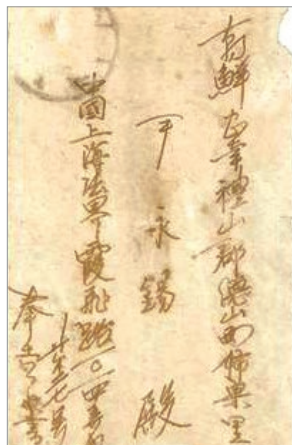 朝鮮忠南禮山郡德山面柿梁里
尹永錫 殿
中國上海法界霞飛路一〇一四弄
奉吉 上書